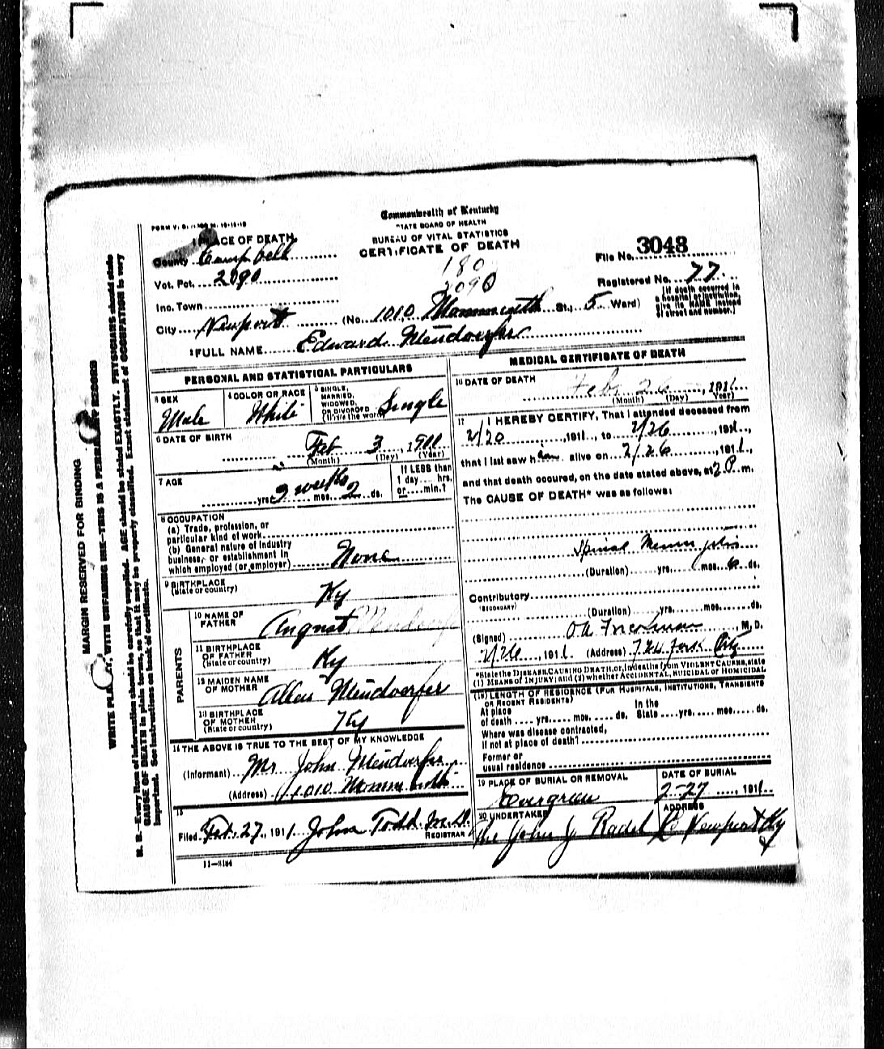 FORM V. S. 1
Commonwealth of Kentucky
STATE BOARD OF HEALTH
BUREAU OF VITAL STATISTICS
CERTIFICATE OF DEATH
1 PLACE OF DEATH
County Campbell
Vot. Pct. 2090
180
2090
File No. 3048
Registered No. 77
Inc. Town
City Newport (No. 1010 Monmouth St., 5 Ward)
[If death occurred in a hospital or institution, give its NAME instead of street and number.]
2 FULL NAME Edward Mendorfer
PERSONAL AND STATISTICAL PARTICULARS
3 SEX Male
4 COLOR OR RACE White
5 SINGLE, MARRIED, WIDOWED, OR DIVORCED (Write the word) Single
6 DATE OF BIRTH Feb 3, 1911
(Month) (Day) (Year)
7 AGE yrs. 3 weeks mos. 2 ds.
If LESS than 1 day hrs. or min.?
8 OCCUPATION
(a) Trade, profession, or
particular kind of work
(b) General nature of industry
business, or establishment in
which employed (or employer) None
9 BIRTHPLACE
(State or country) Ky
PARENTS
10 NAME OF
FATHER August Mendorfer
11 BIRTHPLACE
OF FATHER
(State or country) Ky
12 MAIDEN NAME
OF MOTHER Mendorfer
13 BIRTHPLACE
OF MOTHER
(State or country) Ky
14 THE ABOVE IS TRUE TO THE BEST OF MY KNOWLEDGE
(Informant) Mr John Mendorfer
(Address) 1010 Monmouth
15
Filed Feb. 27, 1911 John Todd M.D.
REGISTRAR
11-3184
MEDICAL CERTIFICATE OF DEATH
16 DATE OF DEATH Feb 26, 1911
(Month) (Day) (Year)
17 I HEREBY CERTIFY, That I attended deceased from
2/20, 1911, to 2/26, 1911,
that I last saw him alive on 2/26, 1911,
and that death occured, on the date stated above, at 2 P. m.
The CAUSE OF DEATH* was as follows:
Spinal Meningitis
(Duration) yrs. mos. 6 ds.
Contributory
(SECONDARY)
(Duration) yrs. mos. ds.
(Signed) M. D.
2/26, 1911 (Address)
*State the DISEASE CAUSING DEATH, or, in deaths from VIOLENT CAUSES, state
(1) MEANS OF INJURY; and (2) whether ACCIDENTAL, SUICIDAL or HOMICIDAL
18 LENGTH OF RESIDENCE (FOR HOSPITALS, INSTITUTIONS, TRANSIENTS
OR RECENT RESIDENTS)
At place
of death yrs. mos. ds.
In the
State yrs. mos. ds.
Where was disease contracted,
if not at place of death?
Former or
usual residence
19 PLACE OF BURIAL OR REMOVAL
Evergreen
DATE OF BURIAL
2-27, 1911
20 UNDERTAKER
ADDRESS
The John J Radel Co Newport Ky
MARGIN RESERVED FOR BINDING
WRITE PLAINLY, WITH UNFADING INK—THIS IS A PERMANENT RECORD
N. B.—Every item of information should be carefully supplied. AGE should be stated EXACTLY. PHYSICIANS should state
CAUSE OF DEATH in plain terms, so that it may be properly classified. Exact statement of OCCUPATION is very
important. See instructions on back of certificate.